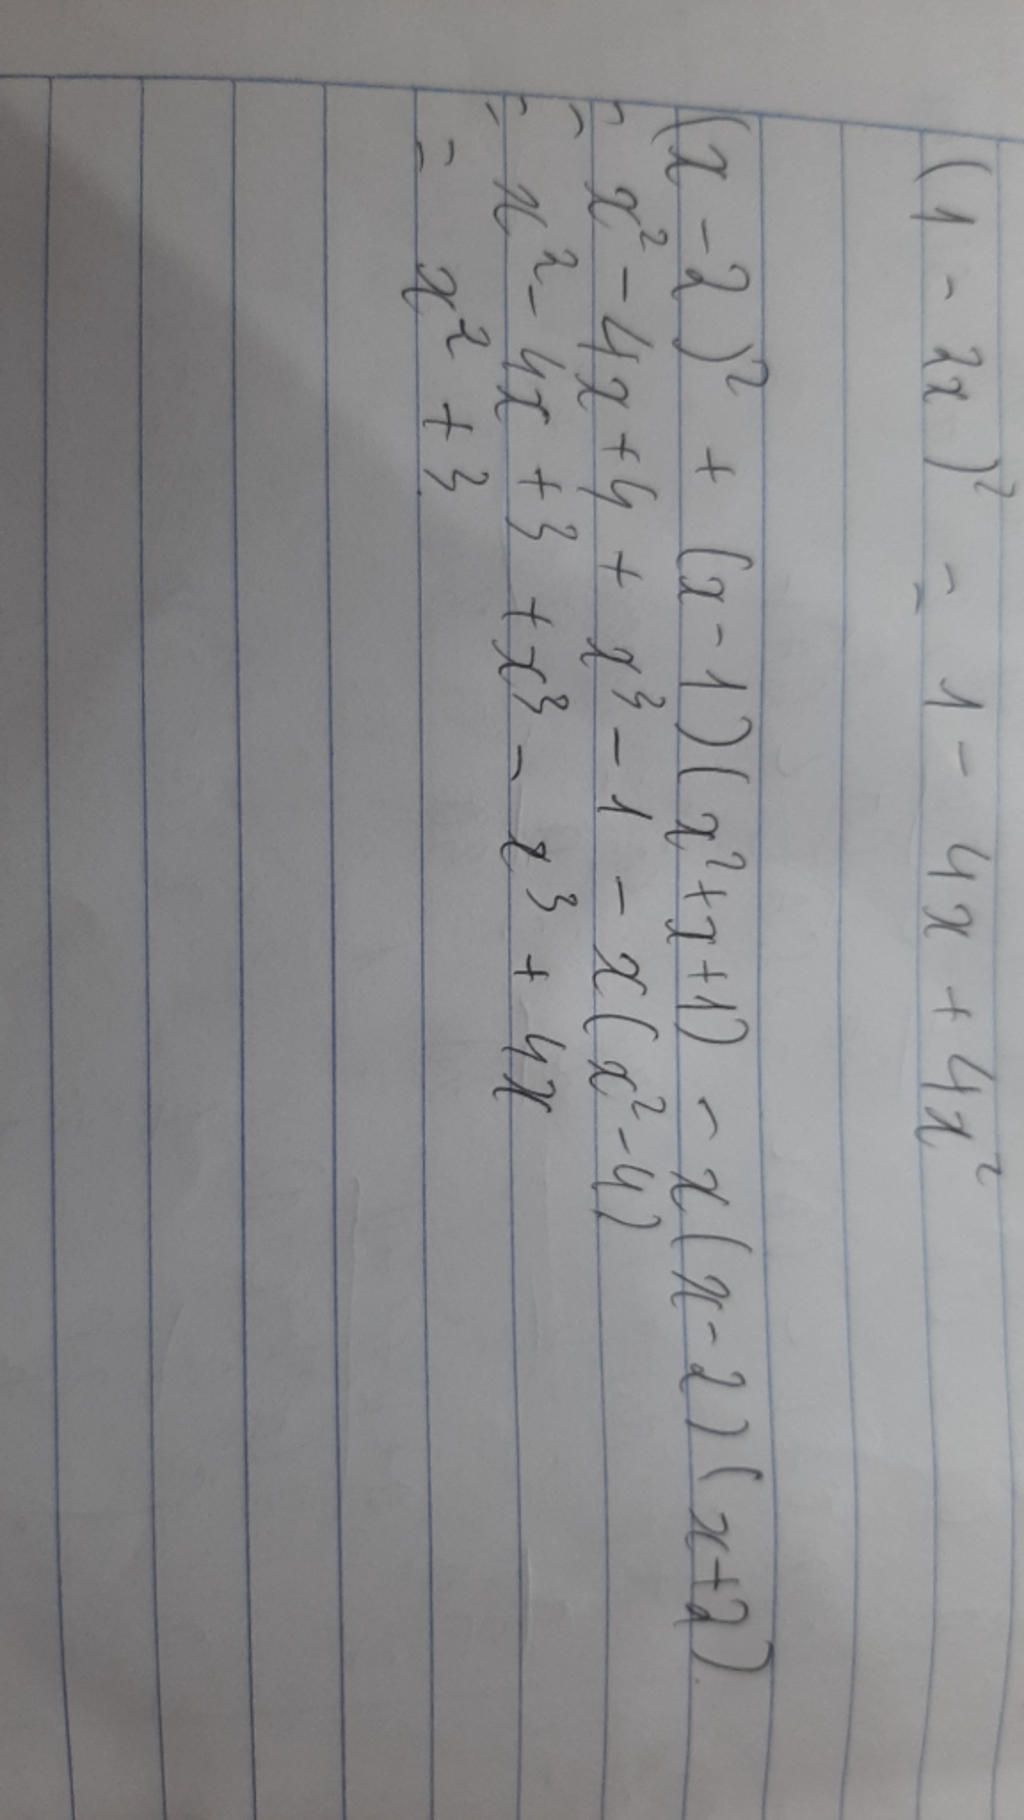 (1 - 2x)² = 1 - 4x + 4x²
(x - 2)² + (x - 1)(x² + x + 1) - x(x - 2)(x + 2)
= x² - 4x + 4 + x³ - 1 - x(x² - 4)
= x² - 4x + 3 + x³ - x³ + 4x
= x² + 3